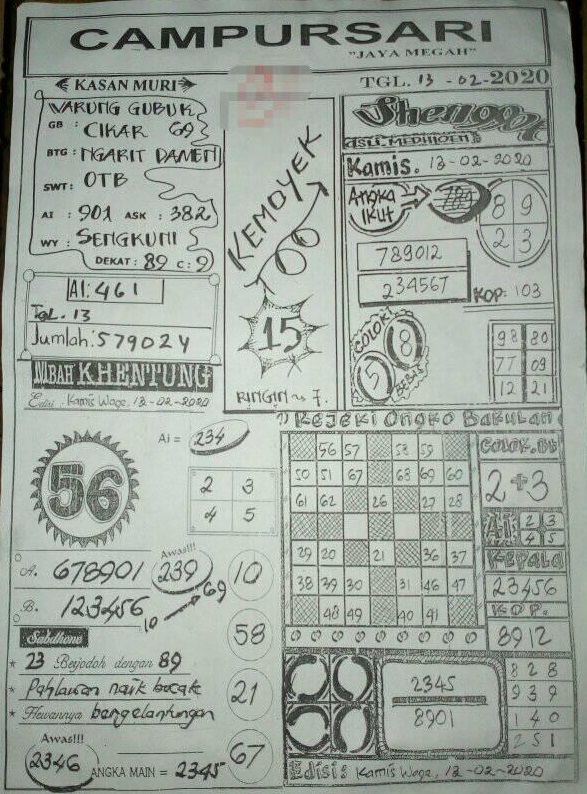 CAMPURSARI
"JAYA MEGAH"
KASAN MURI
TGL. 13 - 02 - 2020
WARUNG GUBUK
GB : CIKAR 69
BTG : NGARIT DAMEN
SWT : OTB
AI : 901 ASK : 382
WY : SENGKUNI
DEKAT : 89 C : 9
AI : 461
TGL. 13
Jumlah : 579024
KEMOYEK
15
RINGIN ~ 7.
ASLI MEDIHOEN
Kamis. 13-02-2020
Angka Ikut
789
8 9
2 3
789012
234567
KOP: 103
COLOK
5 8
BEBAS
98 80
77 09
12 21
MBAH KHENTUNG
Edisi : Kamis Wage, 13-02-2020
Ai = 234
56
2 3
4 5
Awas!!!
A. 678901 239 10
B. 123456
10 69
58
Sabdhone
* 23 Berjodoh dengan 89
* Pahlawan naik becak 21
* Hewannya bergelantungan
Awas!!! 67
2346 ANGKA MAIN = 2345
Rejeki Ongko Bakulan
56 57 58 59
50 51 67 68 69 60
61 62 26 27 28
29 20 21 36 37
38 39 30 31 46 47
48 49 40 41
COLOK.BB
2+3
AI 2 3
4 5
KEPALA
23456
KOP.
8912
2345
8901
828
939
140
251
Edisi : Kamis Wage, 13-02-2020